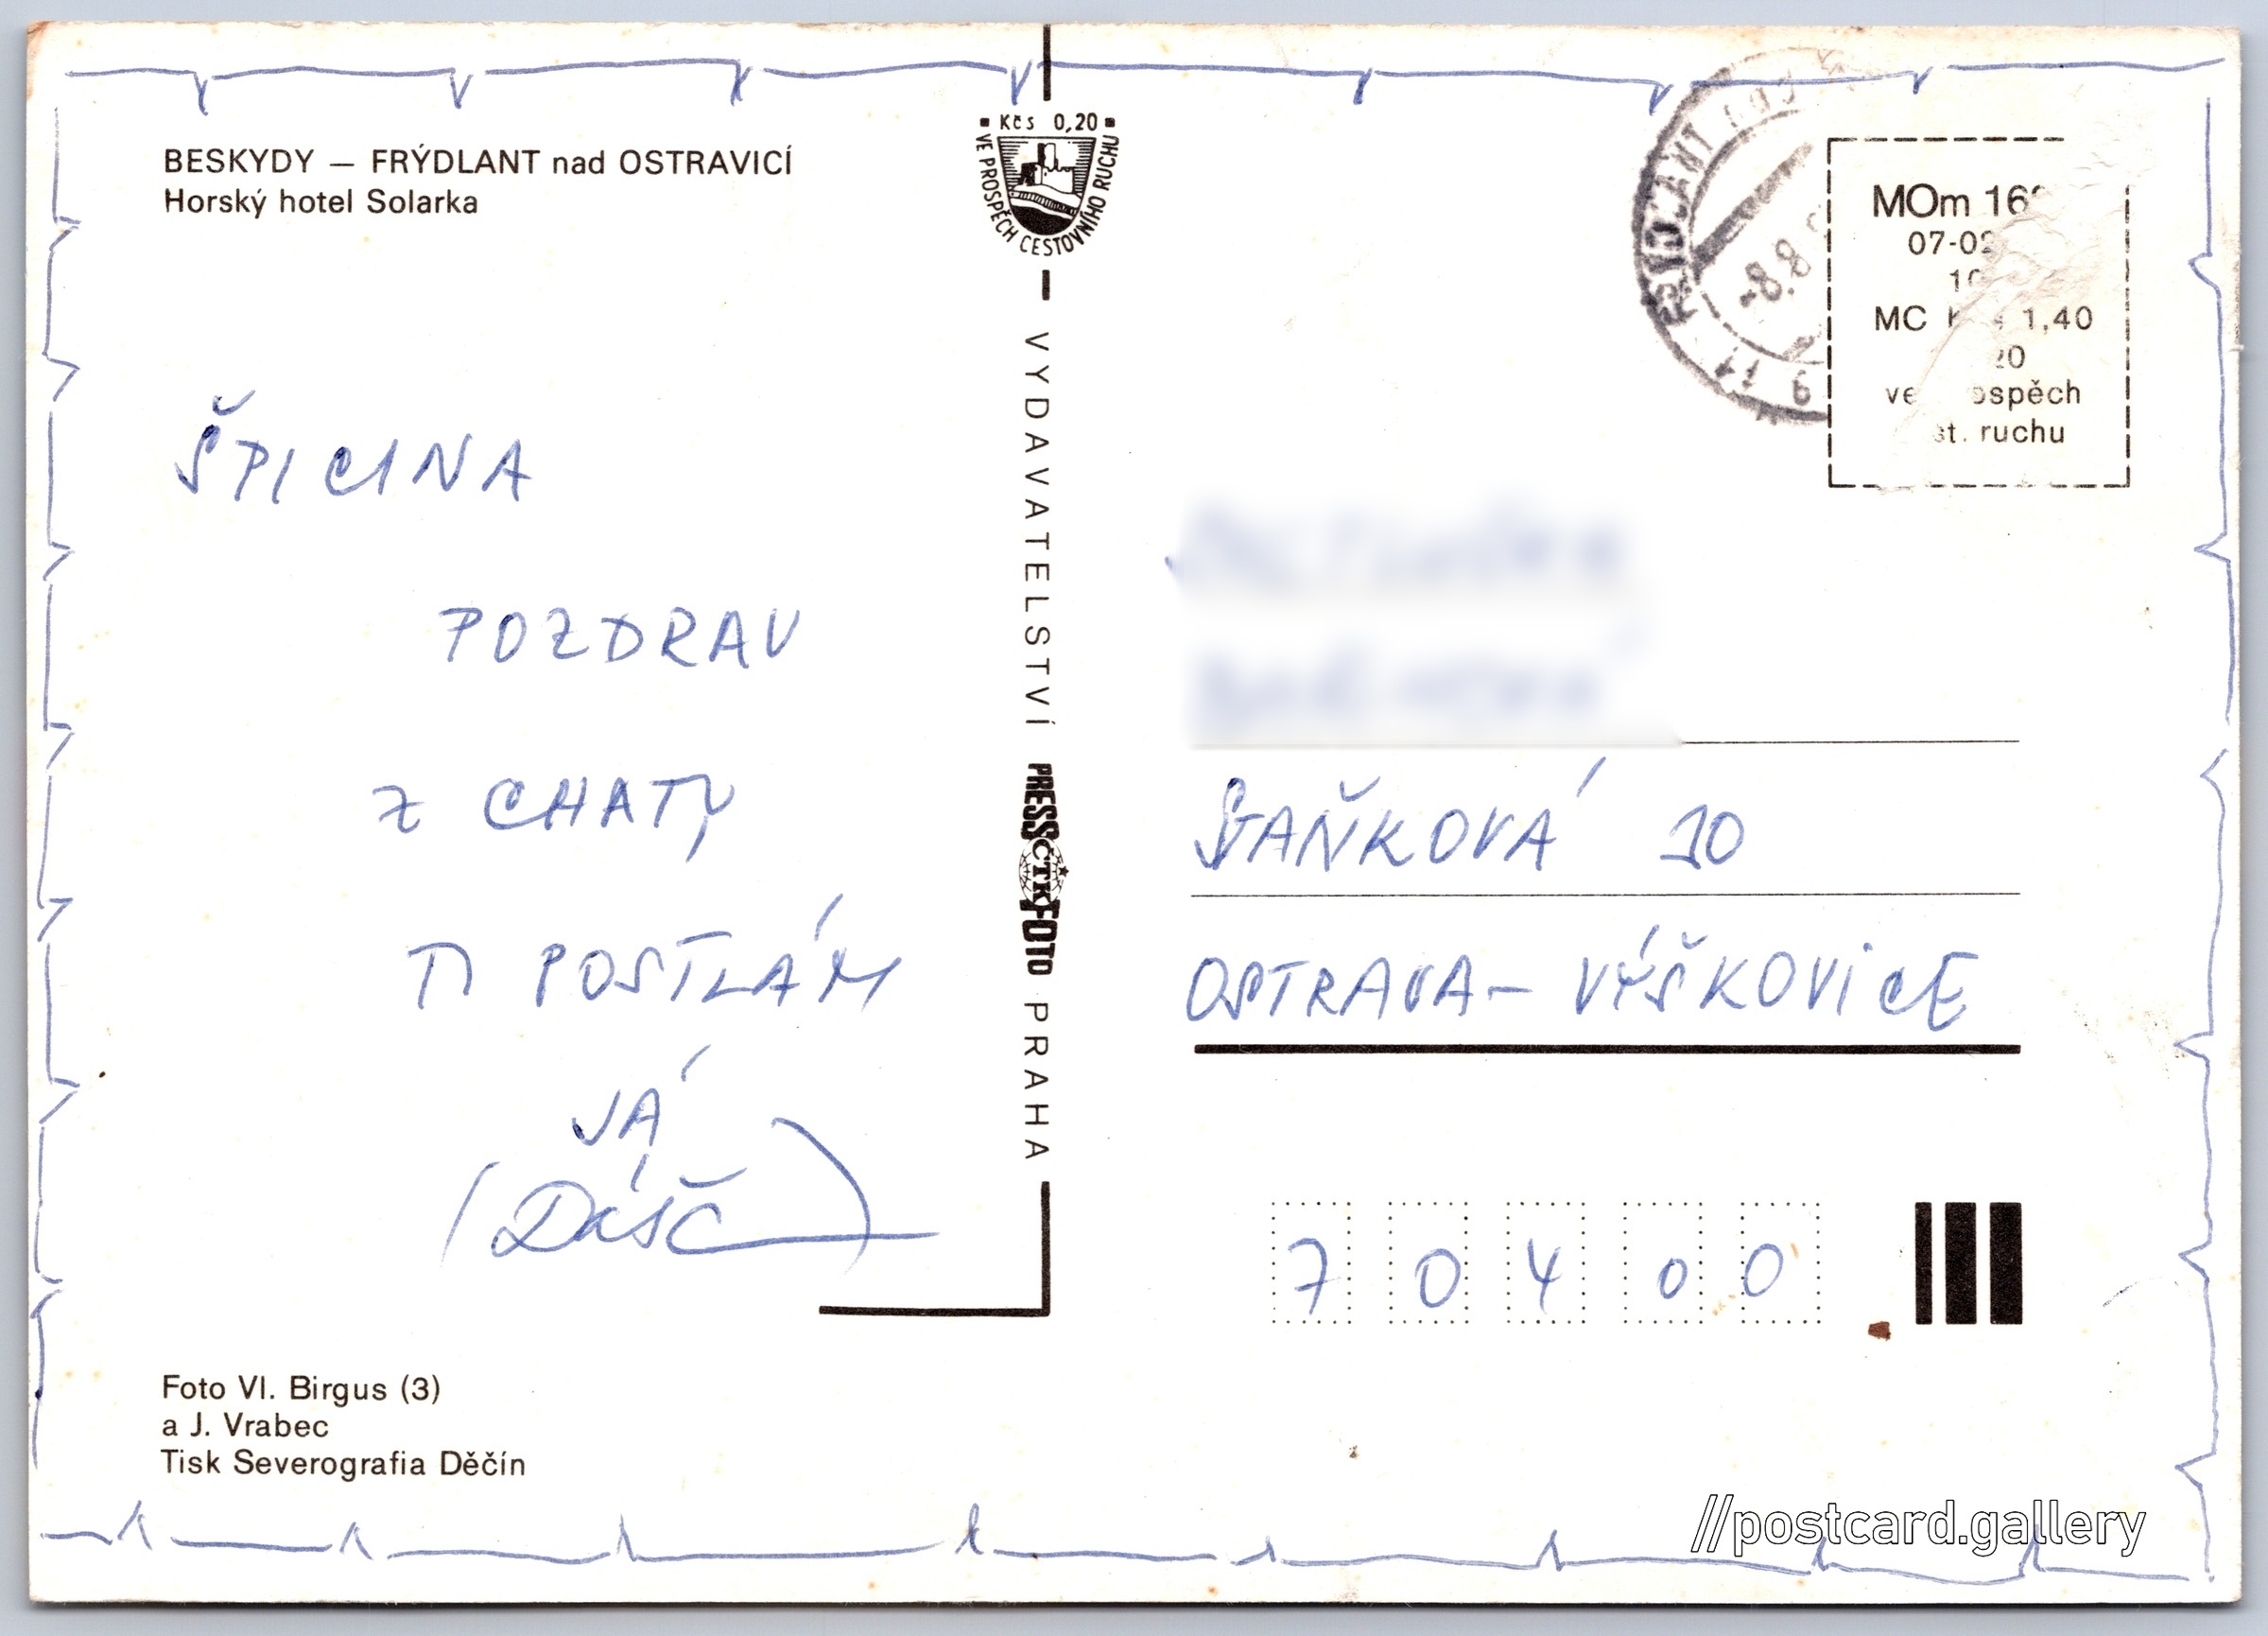 BESKYDY — FRÝDLANT nad OSTRAVICÍ
Horský hotel Solarka
ŠPICINA
POZDRAV
Z CHATY
TI POSTLÁM
JÁ
(DÁŠČ)
Foto Vl. Birgus (3)
a J. Vrabec
Tisk Severografia Děčín
Kčs 0,20
VE PROSPĚCH CESTOVNÍHO RUCHU
VYDAVATELSTVÍ PRESSFOTO PRAHA
ČTK
-8.8
MOm
07-02
MC 1,40
20
ruchu
STAŇKOVÁ 10
OSTRAVA - VÝŠKOVICE
704 00
//postcard.gallery